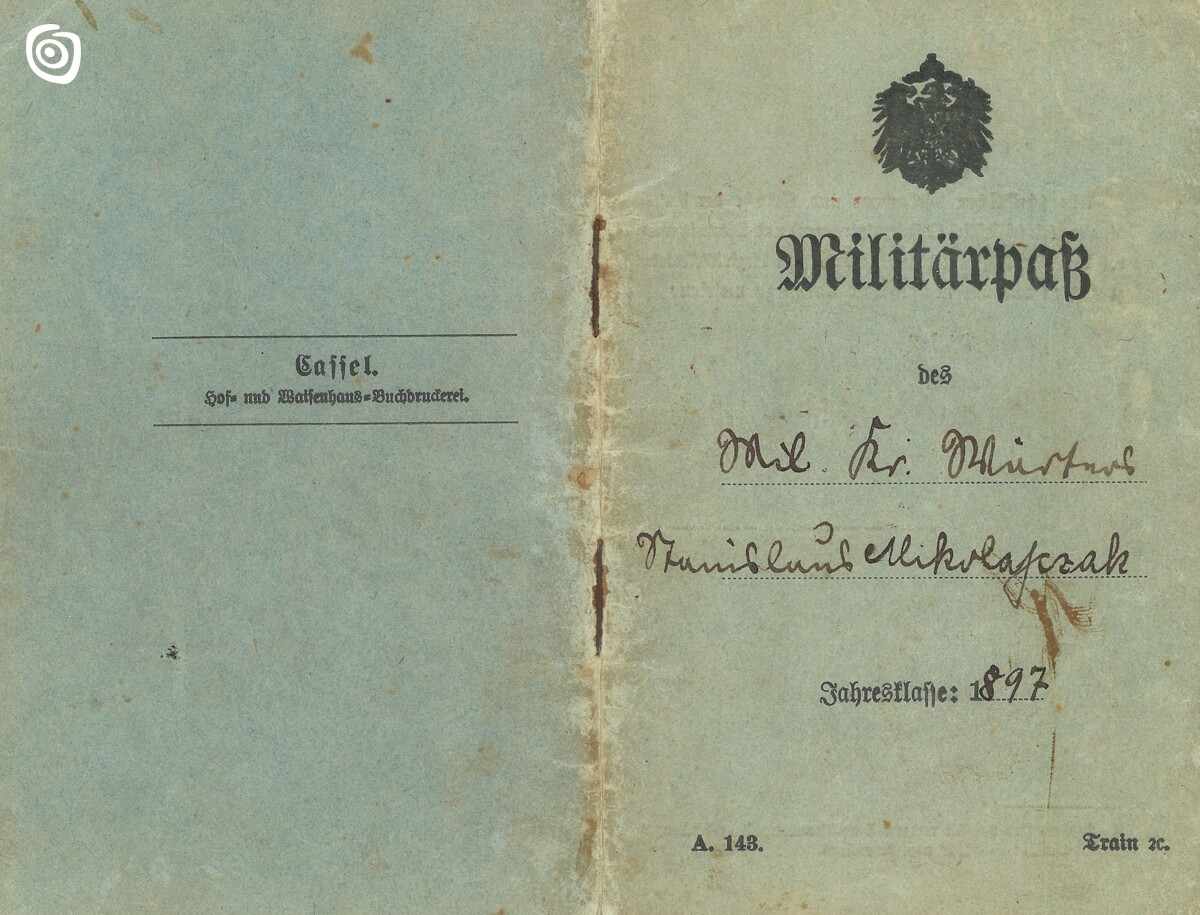 Cassel.
Hof- und Waisenhaus-Buchdruckerei.
Militärpaß
des
Mil. Kr. Wärters
Stanislaus Mikolajczak
Jahresklasse: 1897
A. 143.
Train ꝛc.